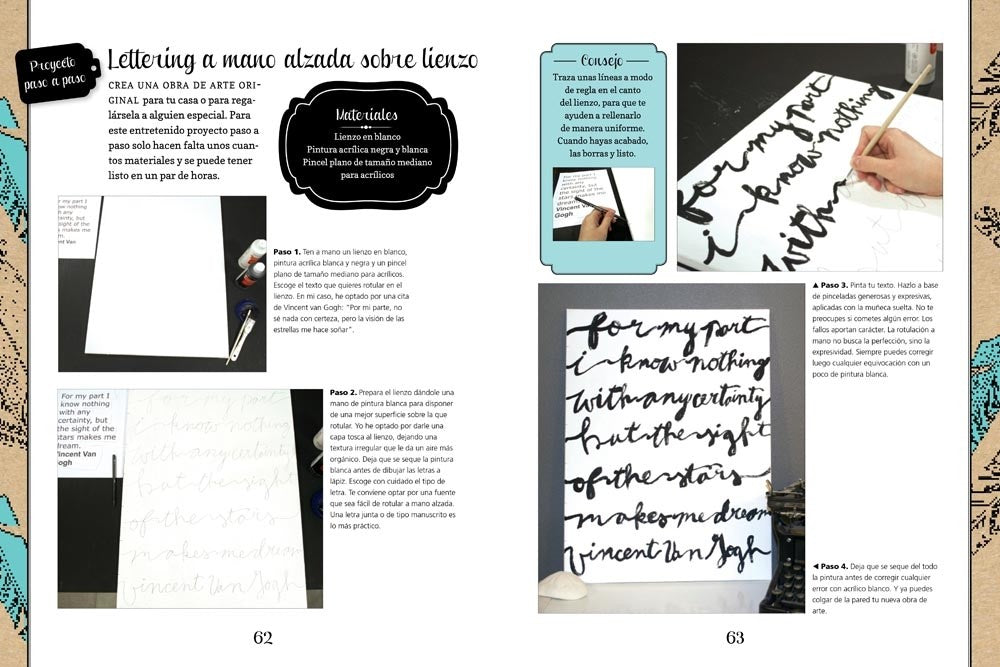 Proyecto
paso a paso
Lettering a mano alzada sobre lienzo
CREA UNA OBRA DE ARTE ORI-
GINAL para tu casa o para rega-
lársela a alguien especial. Para
este entretenido proyecto paso a
paso solo hacen falta unos cuan-
tos materiales y se puede tener
listo en un par de horas.
Materiales
Lienzo en blanco
Pintura acrílica negra y blanca
Pincel plano de tamaño mediano
para acrílicos
for my part I
know nothing
th any
tainty, but
sight of the
s makes me
m.
ent Van
Paso 1. Ten a mano un lienzo en blanco,
pintura acrílica blanca y negra y un pincel
plano de tamaño mediano para acrílicos.
Escoge el texto que quieres rotular en el
lienzo. En mi caso, he optado por una cita
de Vincent van Gogh: "Por mi parte, no
sé nada con certeza, pero la visión de las
estrellas me hace soñar".
For my part I
know nothing
with any
certainty, but
the sight of the
stars makes me
dream.
Vincent Van
ogh
for my part
i know nothing
with any certainty
but the sight
of the stars
makes me dream
Vincent Van Gogh
Paso 2. Prepara el lienzo dándole una
mano de pintura blanca para disponer
de una mejor superficie sobre la que
rotular. Yo he optado por darle una
capa tosca al lienzo, dejando una
textura irregular que le da un aire más
orgánico. Deja que se seque la pintura
blanca antes de dibujar las letras a
lápiz. Escoge con cuidado el tipo de
letra. Te conviene optar por una fuente
que sea fácil de rotular a mano alzada.
Una letra junta o de tipo manuscrito es
lo más práctico.
62
Consejo
Traza unas líneas a modo
de regla en el canto
del lienzo, para que te
ayuden a rellenarlo
de manera uniforme.
Cuando hayas acabado,
las borras y listo.
For my part I
know nothing
with any
certainty, but
the sight of the
stars makes me
dream
Vincent Van
Gogh
for my part
i know nothing
with
▲ Paso 3. Pinta tu texto. Hazlo a base
de pinceladas generosas y expresivas,
aplicadas con la muñeca suelta. No te
preocupes si cometes algún error. Los
fallos aportan carácter. La rotulación a
mano no busca la perfección, sino la
expresividad. Siempre puedes corregir
luego cualquier equivocación con un
poco de pintura blanca.
for my part
i know nothing
with any certainty
but the sight
of the stars
makes me dream
Vincent Van Gogh
◀ Paso 4. Deja que se seque del todo
la pintura antes de corregir cualquier
error con acrílico blanco. Y ya puedes
colgar de la pared tu nueva obra de
arte.
63